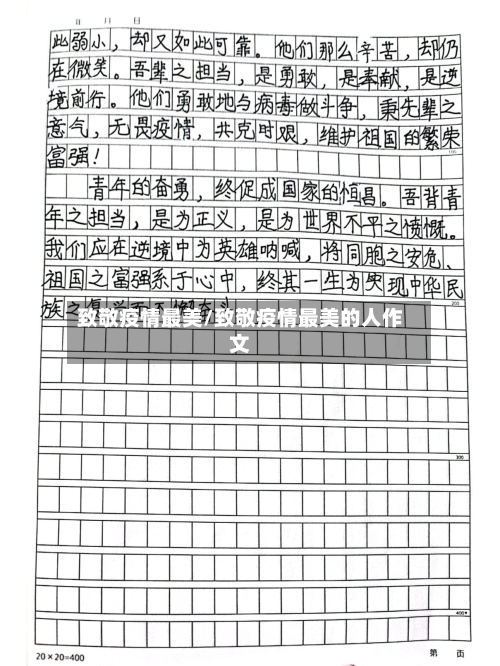 年 月 日
此弱小，却又如此可靠。他们那么辛苦，却仍
在微笑。吾辈之担当，是勇敢，是奉献，是逆
境前行。他们勇敢地与病毒做斗争，秉先辈之
意气，无畏疫情，共克时艰，维护祖国的繁荣
100
富强！
青年的奋勇，终促成国家的恒昌。吾背青
年之担当，是为正义，是为世界不平之愤慨。
我们应在逆境中为英雄呐喊，将同胞之安危、
祖国之富强系于心中，终其一生为实现中华民
200
族之复兴而不懈奋斗
致敬疫情最美/致敬疫情最美的人作
文
300
400
20×20=400
第 页